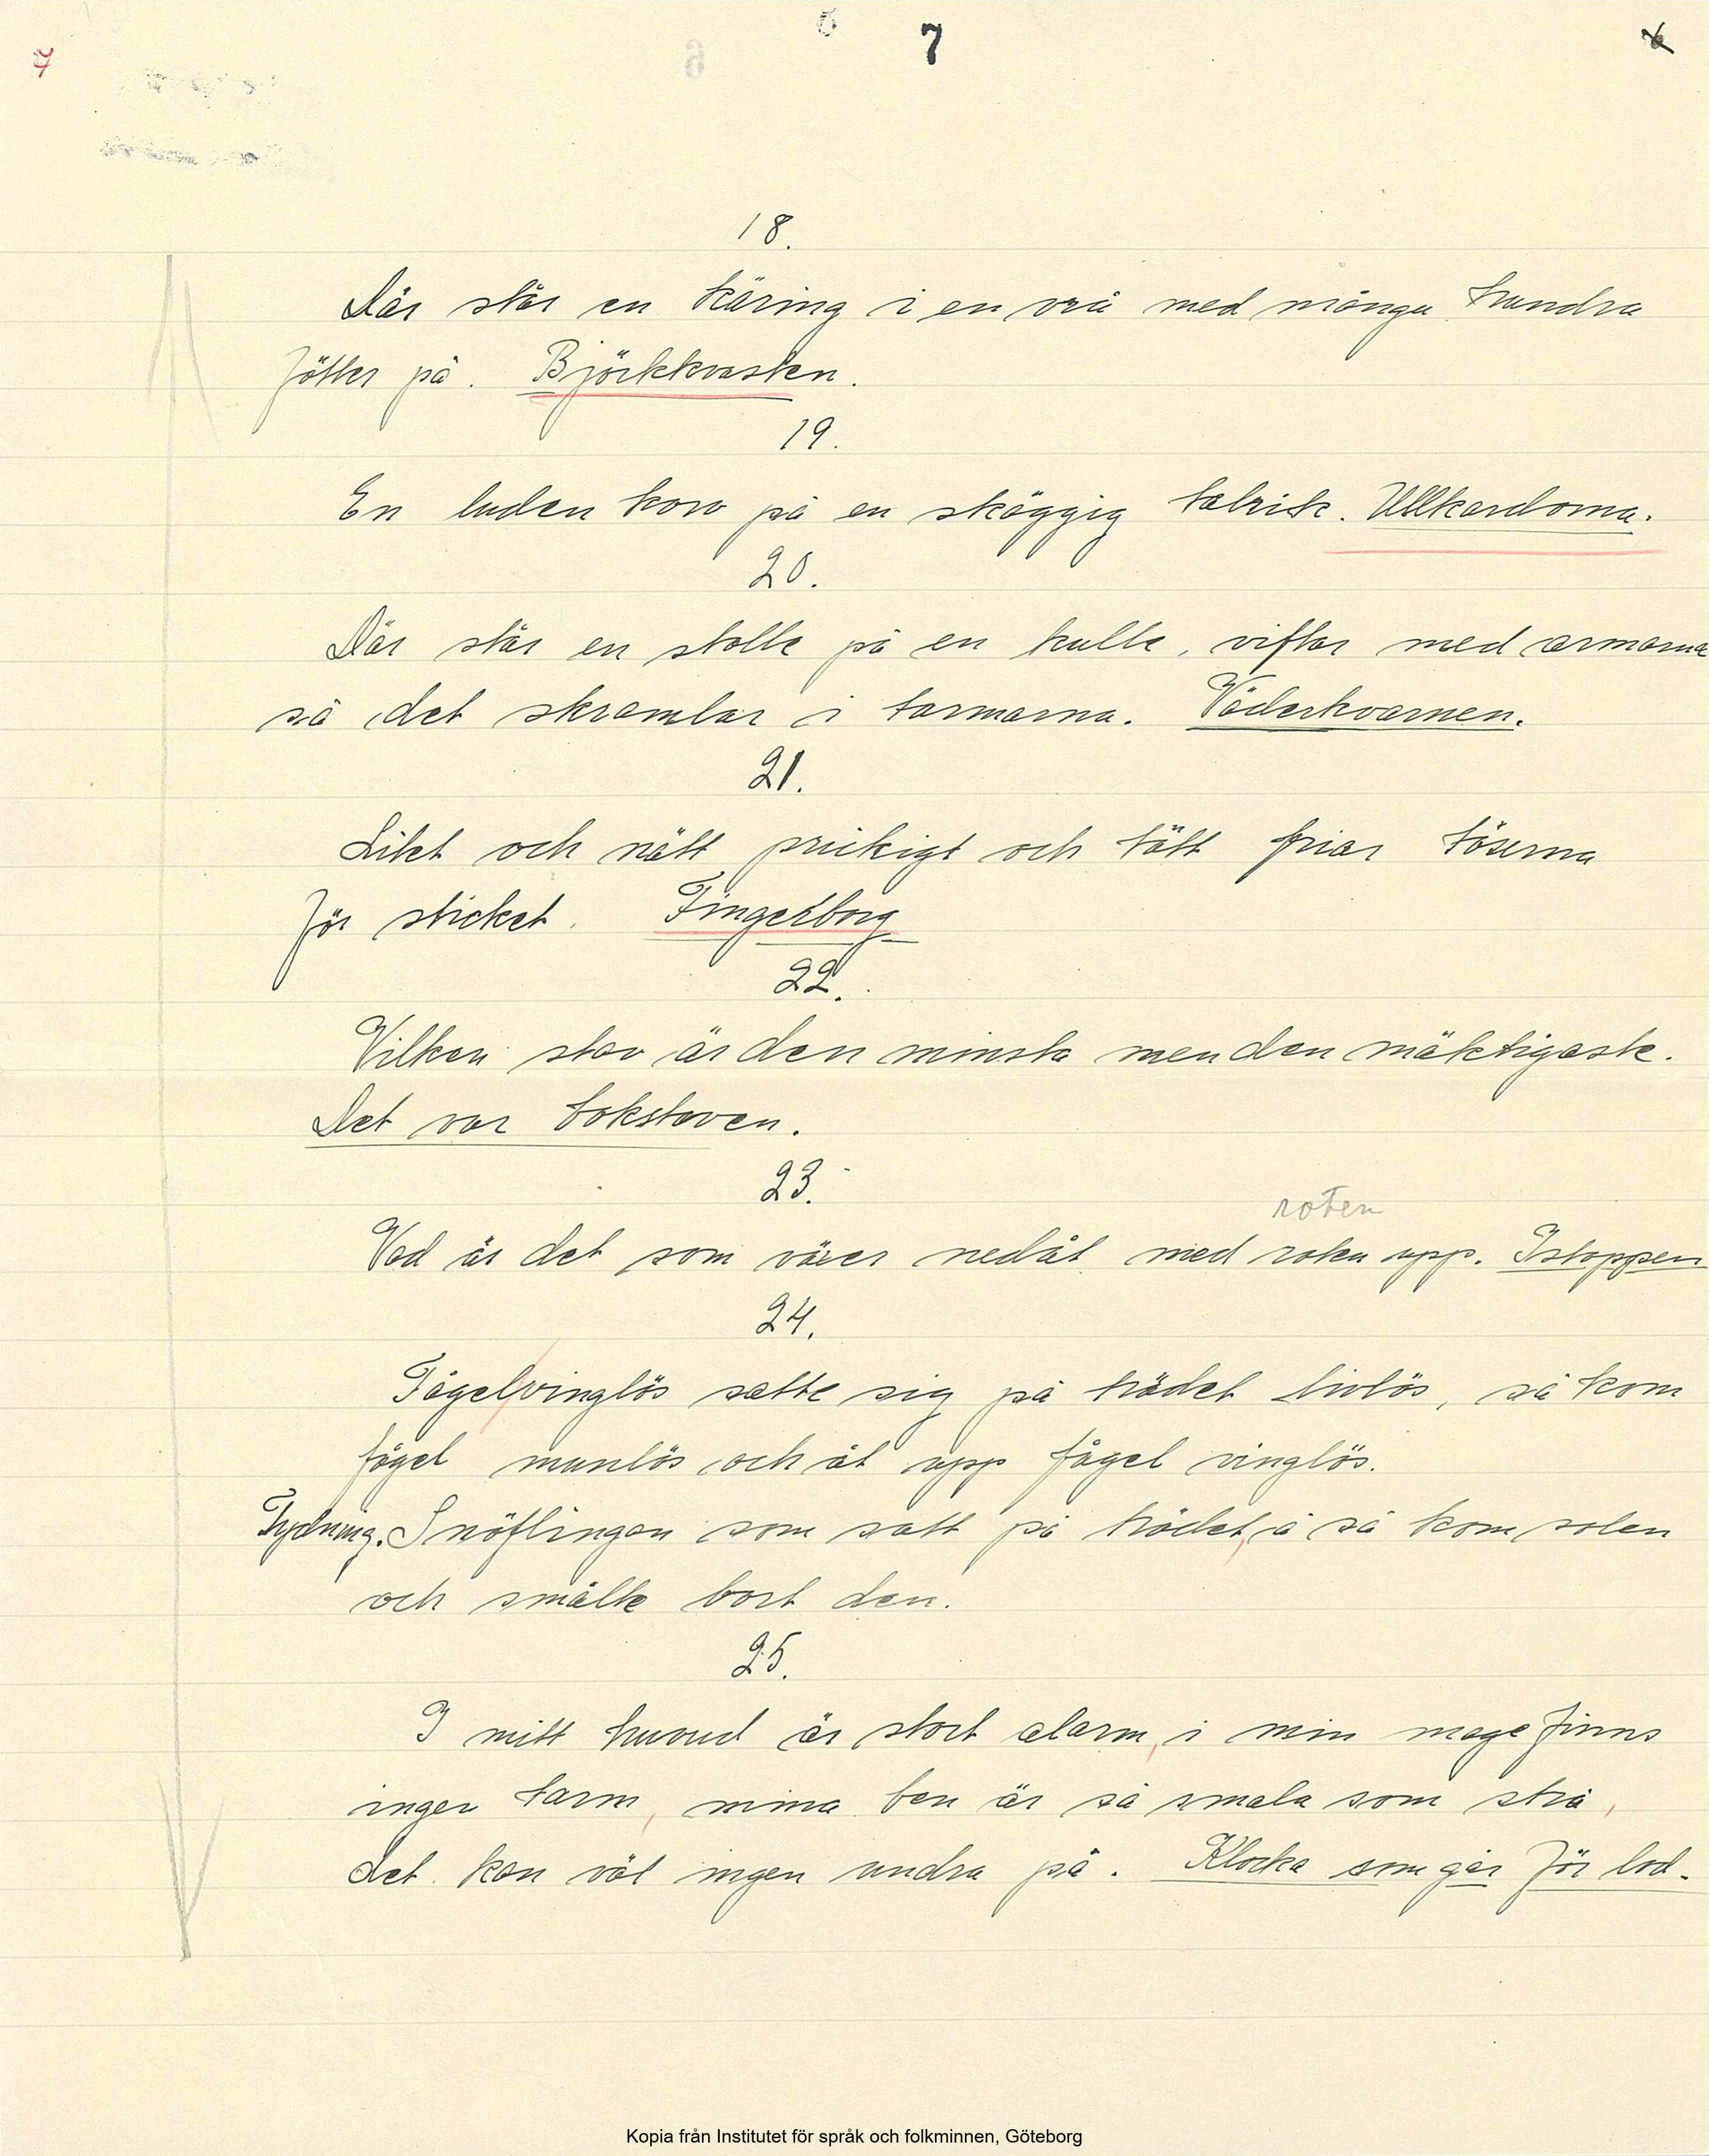 7
7
18.
Där står en käring i en vrå med många hundra
fötter på. Björkkvasten.
19.
En luden korv på en skäggig talrik. Ullkardorna.
20.
Där står en stolle på en kulle, viftar med armarna
så det skramlar i tarmarna. Väderkvarnen.
21.
Litet och nätt prickigt och tätt friar töserna
för sticket. Fingerborg
22.
Vilken stav är den minsta men den mäktigaste.
Det var bokstaven.
23.
roten
Vad är det som växer nedåt med roten upp. Istappen
24.
Fågel vinglös satte sig på trädet livlös, så kom
fågel munlös och åt upp fågel vinglös.
Tydning. Snöflingan som satt på trädet, å så kom solen
och smälte bort den.
25.
I mitt huvud är stort alarm, i min mage finns
ingen tarm, mina ben är så smala som strå,
det kan väl ingen undra på. Klocka som går för lod.
Kopia från Institutet för språk och folkminnen, Göteborg